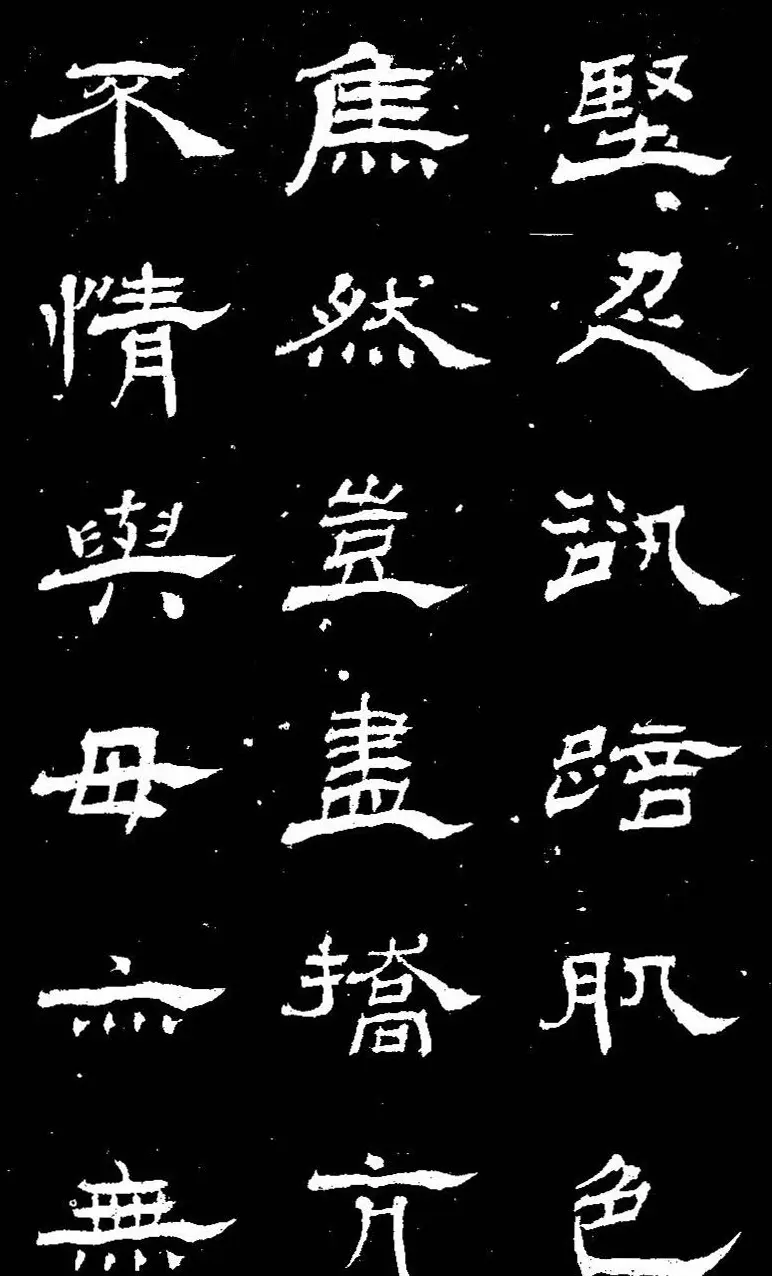 堅忍訊踣肌色
焦然豈盡撟亢
不情與毋亦無